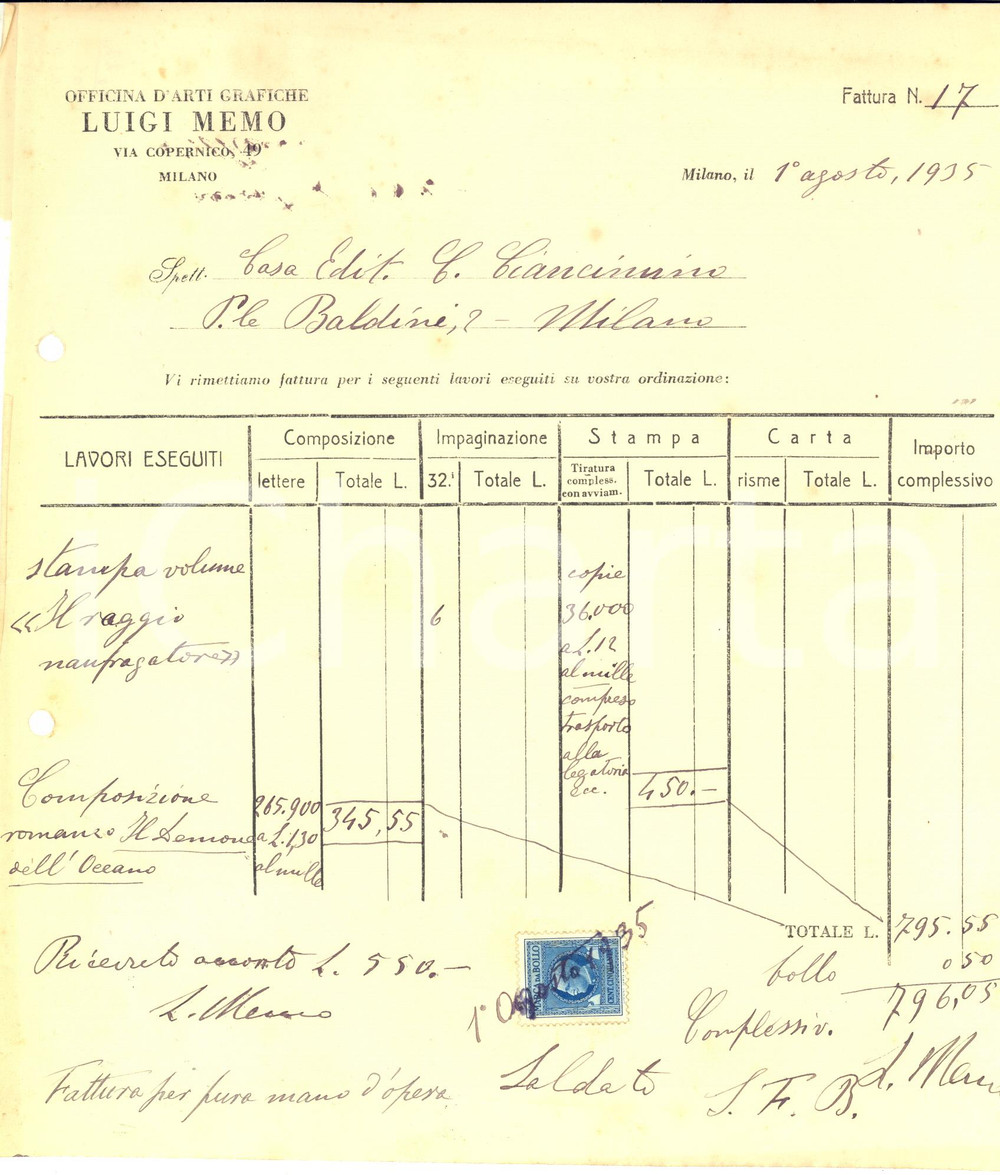 OFFICINA D'ARTI GRAFICHE
LUIGI MEMO
VIA COPERNICO, 49
MILANO
Fattura N. 17
Milano, il 1° agosto, 1935
Spett. Casa Edit. C. Ciancimino
P.le Baldini, 2 - Milano
Vi rimettiamo fattura per i seguenti lavori eseguiti su vostra ordinazione:
LAVORI ESEGUITI
Composizione
lettere
Totale L.
Impaginazione
32.i
Totale L.
Stampa
Tiratura
compless.
con avviam.
Totale L.
Carta
risme
Totale L.
Importo
complessivo
stampa volume
«Il raggio
naufragatore»
6
copie
36.000
a L. 12
al mille
compreso
trasporto
alla
legatoria
ecc.
450.-
Composizione
romanzo Il Demone
dell'Oceano
265.900
a L. 1,30
al mille
345,55
TOTALE L. 795.55
bollo 0 50
Complessiv. 796,05
Ricevuto acconto L. 550.-
L. Memo
MARCA DA BOLLO
CENT. CINQUANTA
1° Agosto 1935
Saldato
S. F. B.
L. Memo
Fattura per pura mano d'opera
Charta